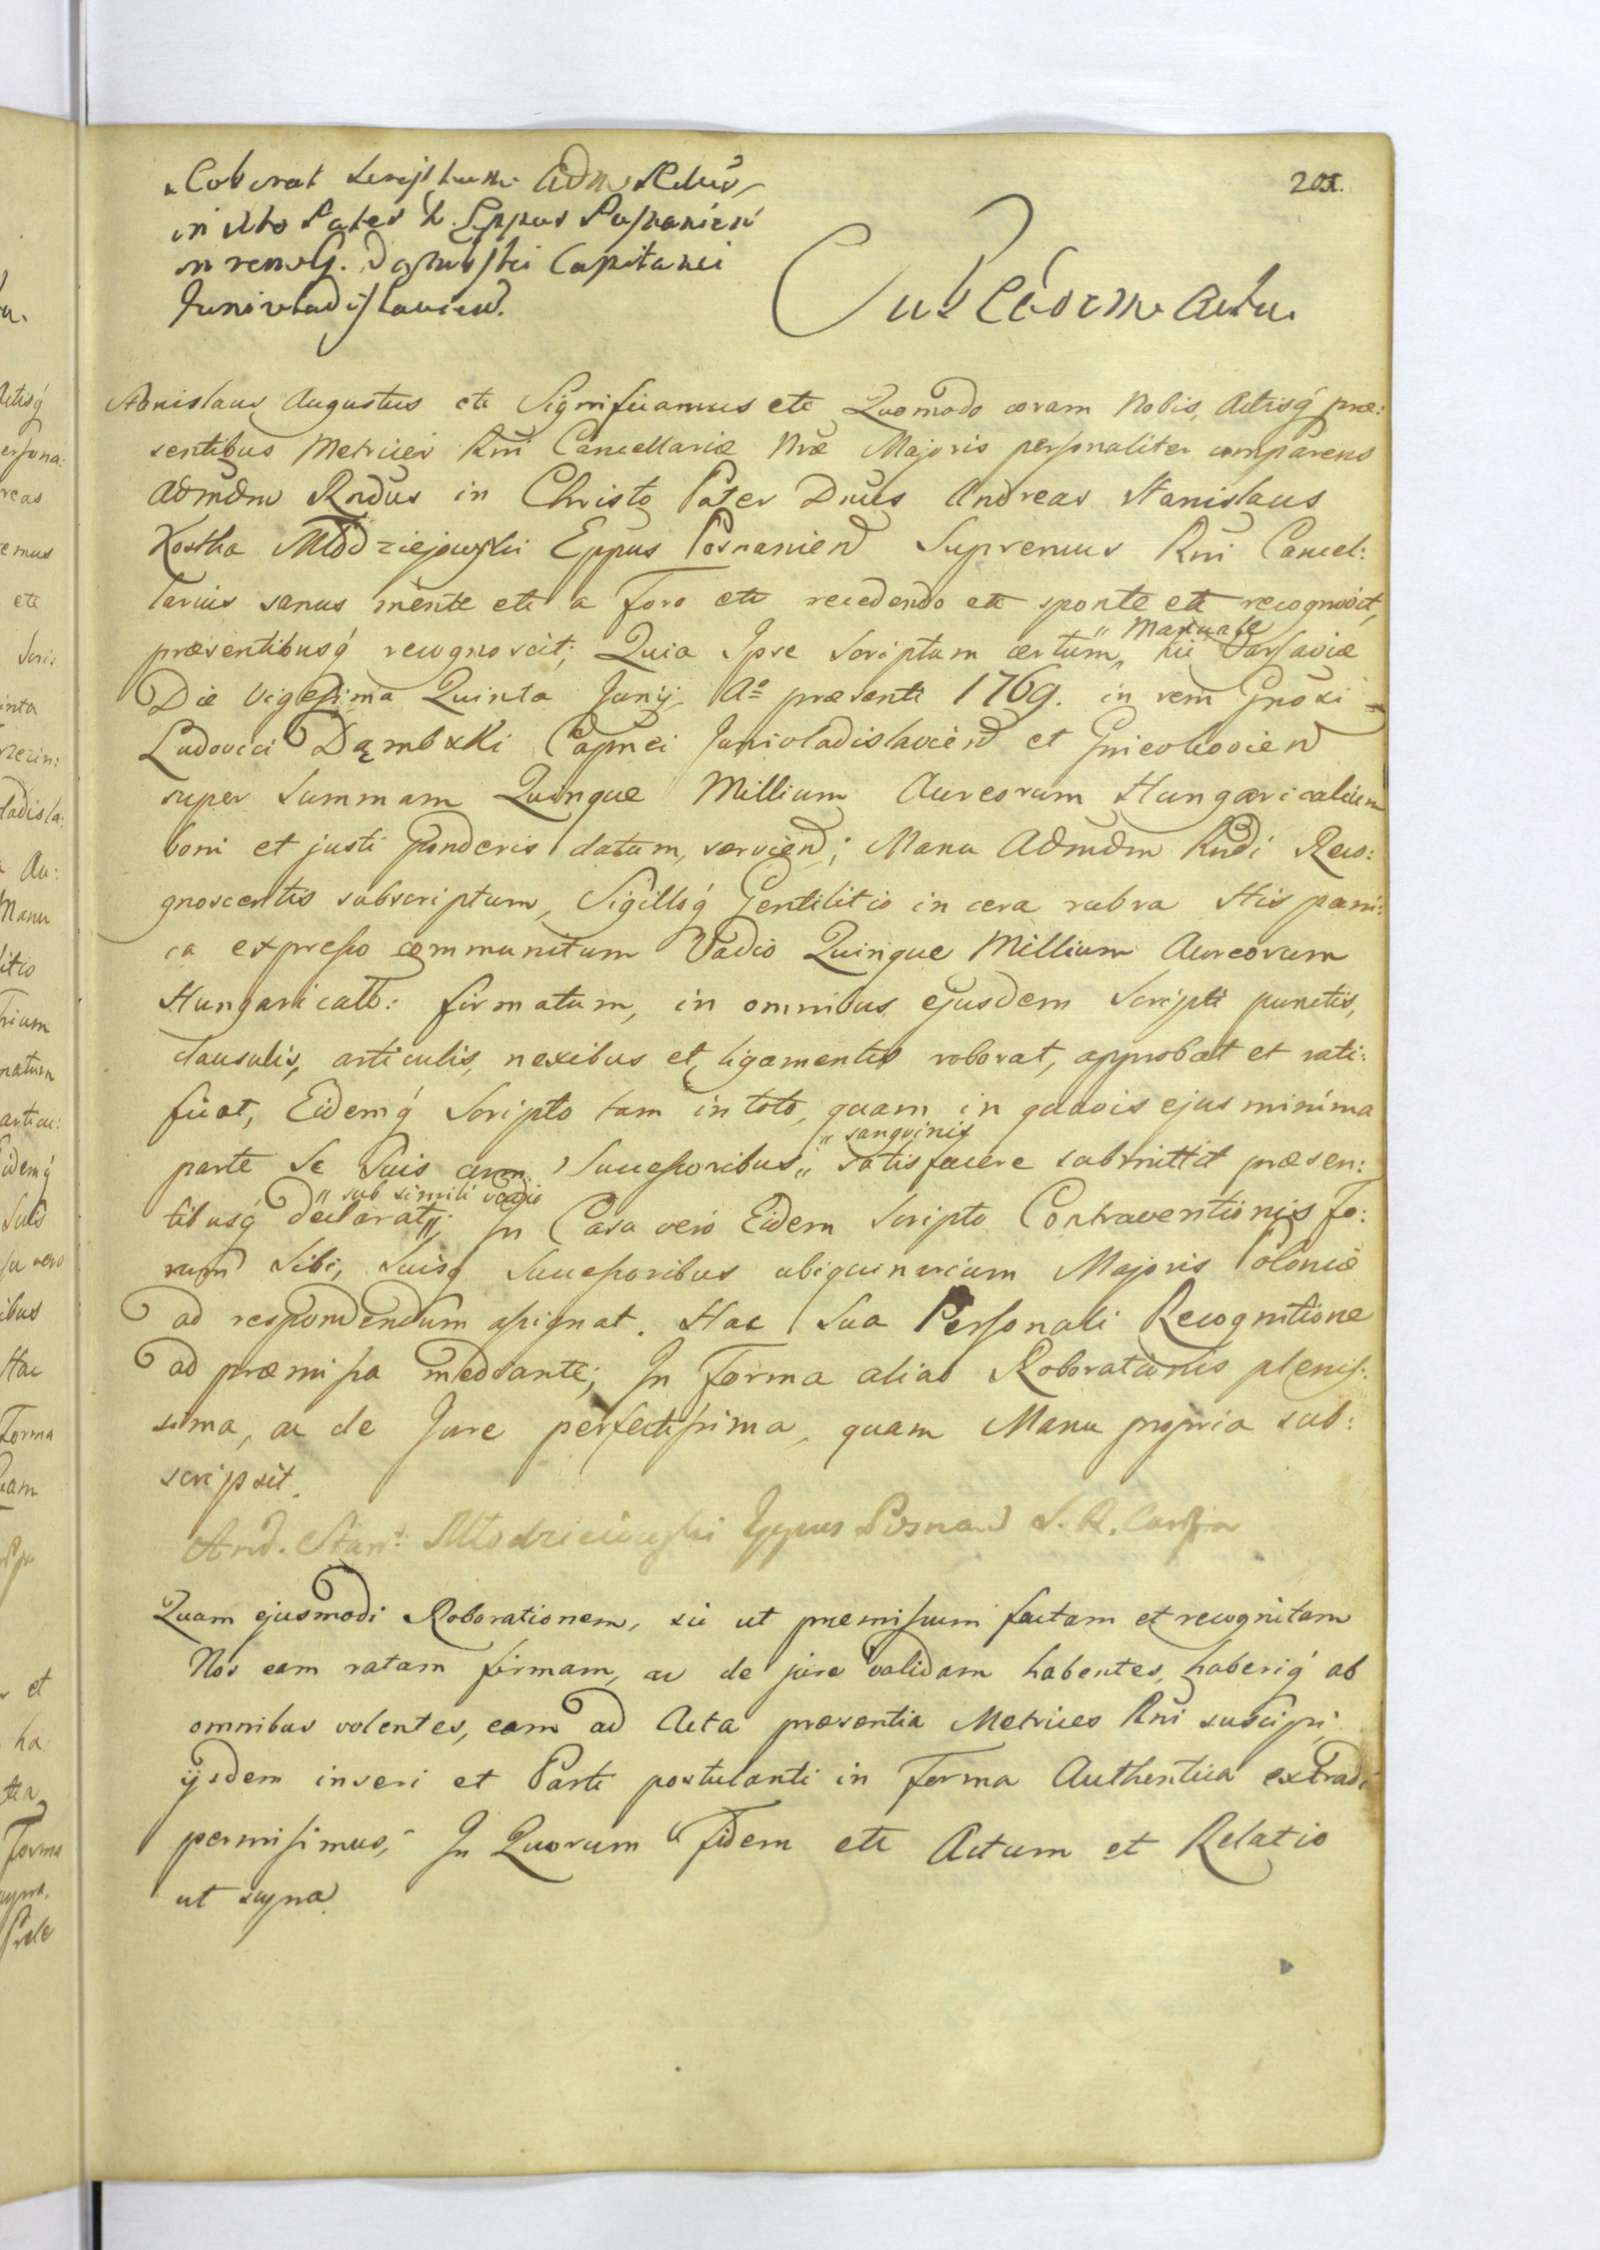 201.
Roborat Scriptum Adm Rdus
in Xto Pater D. Eppus Posnanien
in rem G. Dąmbski Capitanei
Junivladislavien.
Sub Eodem Actu.
Stanislaus Augustus etc Significamus etc Quomodo coram Nobis, Actisq́ præ:
sentibus Metrices Rni Cancellariæ Nræ Majoris personaliter comparens
Admdm Rndus in Christo Pater Dnus Andreas Stanislaus
Kostka Młodziejowski Eppus Posnanien Supremus Rni Cancel:
larius sanus mente etc a Foro etc recedendo etc sponte etc recognovit,
præsentibusq́ recognoscit; Quia Ipse Scriptum certum „ Manuale hic Varsaviæ
Die Vigesima Quinta Junij Aō præsenti 1769. in rem Gnosi
Ludovici Dąmbski Capnei Junivladislavien et Gnievkovien
super Summam Quinque Millium Aureorum Hungaricalium
boni et justi ponderis datum, servien; Manu Admdm Rndi Reco:
gnoscentis subscriptum, Sigilloq́ Gentilitio in cera rubra Hispani:
ca expresso communitum Vadio Quinque Millium Aureorum
Hungaricalt: firmatum, in omnibus ejusdem Scripti punctis,
clausulis, articulis, nexibus et ligamentis roborat, approbat et rati:
ficat, Eidemq́ Scripto tam in toto, quam in quavis ejus minima
parte Se Suis cum Successoribus „ sanguinis satisfacere submittit præsen:
tibusq́ declarat „ sub simili vadio; In Casu vero Eidem Scripto Contraventionis Fo:
rum Sibi, Suisq Successoribus ubiquinarium Majoris Poloniæ
ad respondendum assignat. Hac Sua Personali Recognitione
ad præmissa mediante; In Forma alias Roborationis plenis:
sima, ac de Jure perfectissima, quam Manu propria sub:
scripsit.
And. Stans. Młodzieiowski Eppus Posnan S. R. Canc
Quam ejusmodi Roborationem, sic ut præmissum factam et recognitam
Nos eam ratam firmam, ac de jure validam habentes, haberiq́ ab
omnibus volentes, eam ad Acta præsentia Metrices Rni suscipi,
ijsdem inseri et Parti postulanti in Forma Authentica extradi
permisimus; In Quorum Fidem etc Actum et Relatio
ut supra